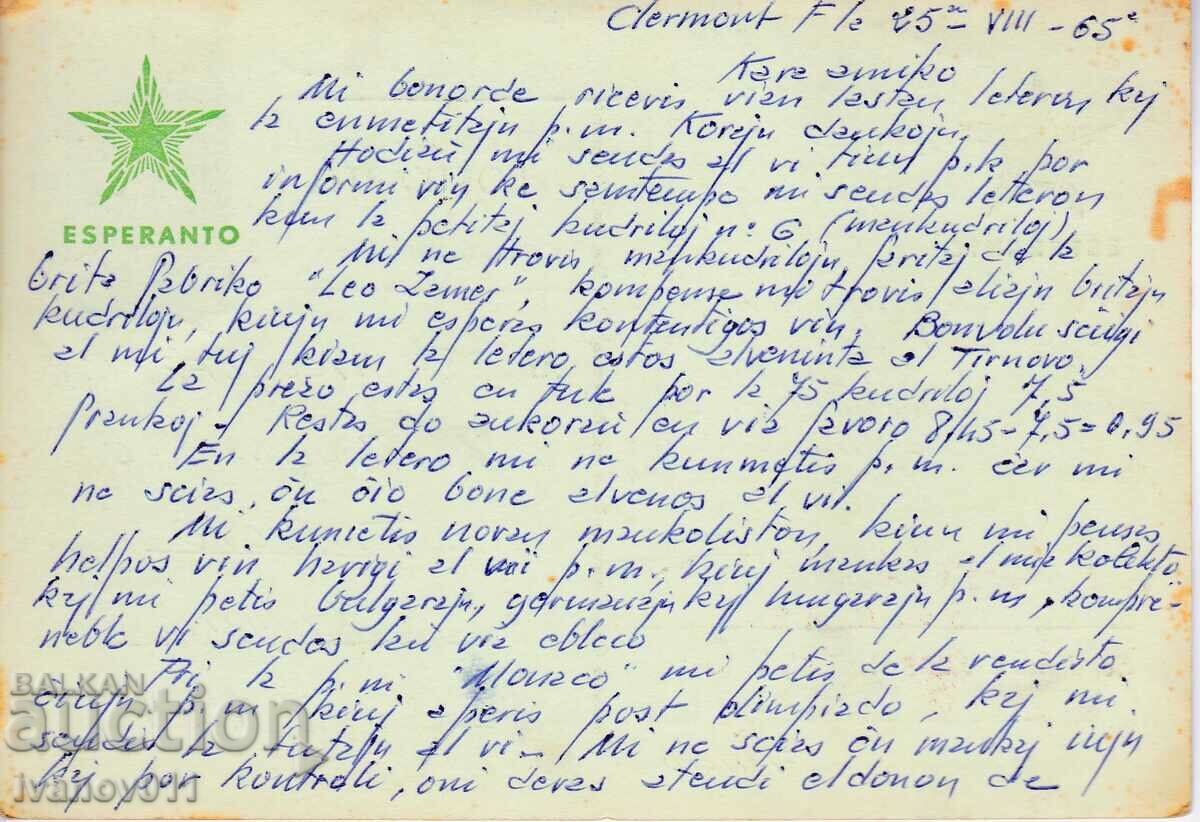 Clermont F la 25an VIII - 65a
Kara amiko
Mi bonorde ricevis vian lastan leteron kaj
la enmetitajn p.m. Korajn dankojn.
Hodiaŭ mi sendas al vi tiun p.k por
informi vin ke samtempe mi sendas leteron
kun la petitaj kudriloj n: 6 (mankudriloj)
ESPERANTO
Mi ne trovis mankudrilojn, faritaj de la
brita fabriko "Leo", kompense mi trovis aliajn britajn
kudrilojn, kiujn mi esperas kontentigos vin. Bonvolu sciigi
al mi, tuj kiam la letero estos alveninta al Tirnovo.
La prezo estas en tuk por la 75 kudriloj 7,5
frankoj - Restas do ankoraŭ en via favoro 8,45 - 7,5 = 0,95
En la letero mi ne kunmetis p.m. ĉar mi
ne scias, ĉu ĉio bone alvenos al vi.
Mi kunmetis novan mankoliston, kiun mi pensas
helpos vin havigi al mi p.m., kiuj mankas al mia kolekto,
kaj mi petis bulgarajn, germanajn kaj hungarajn p.m, kompre-
neble vi sendas laŭ via ebleco
Pri la p.m. "Monaco" mi petis de la vendisto
ĉiujn p.m, kiuj aperis post olimpiado, kaj mi
sendas la tutajn al vi - Mi ne scias ĉu mankaj iujn
kaj por kontroli, oni devas atendi eldonon de
BALKAN
auction
ivanov011